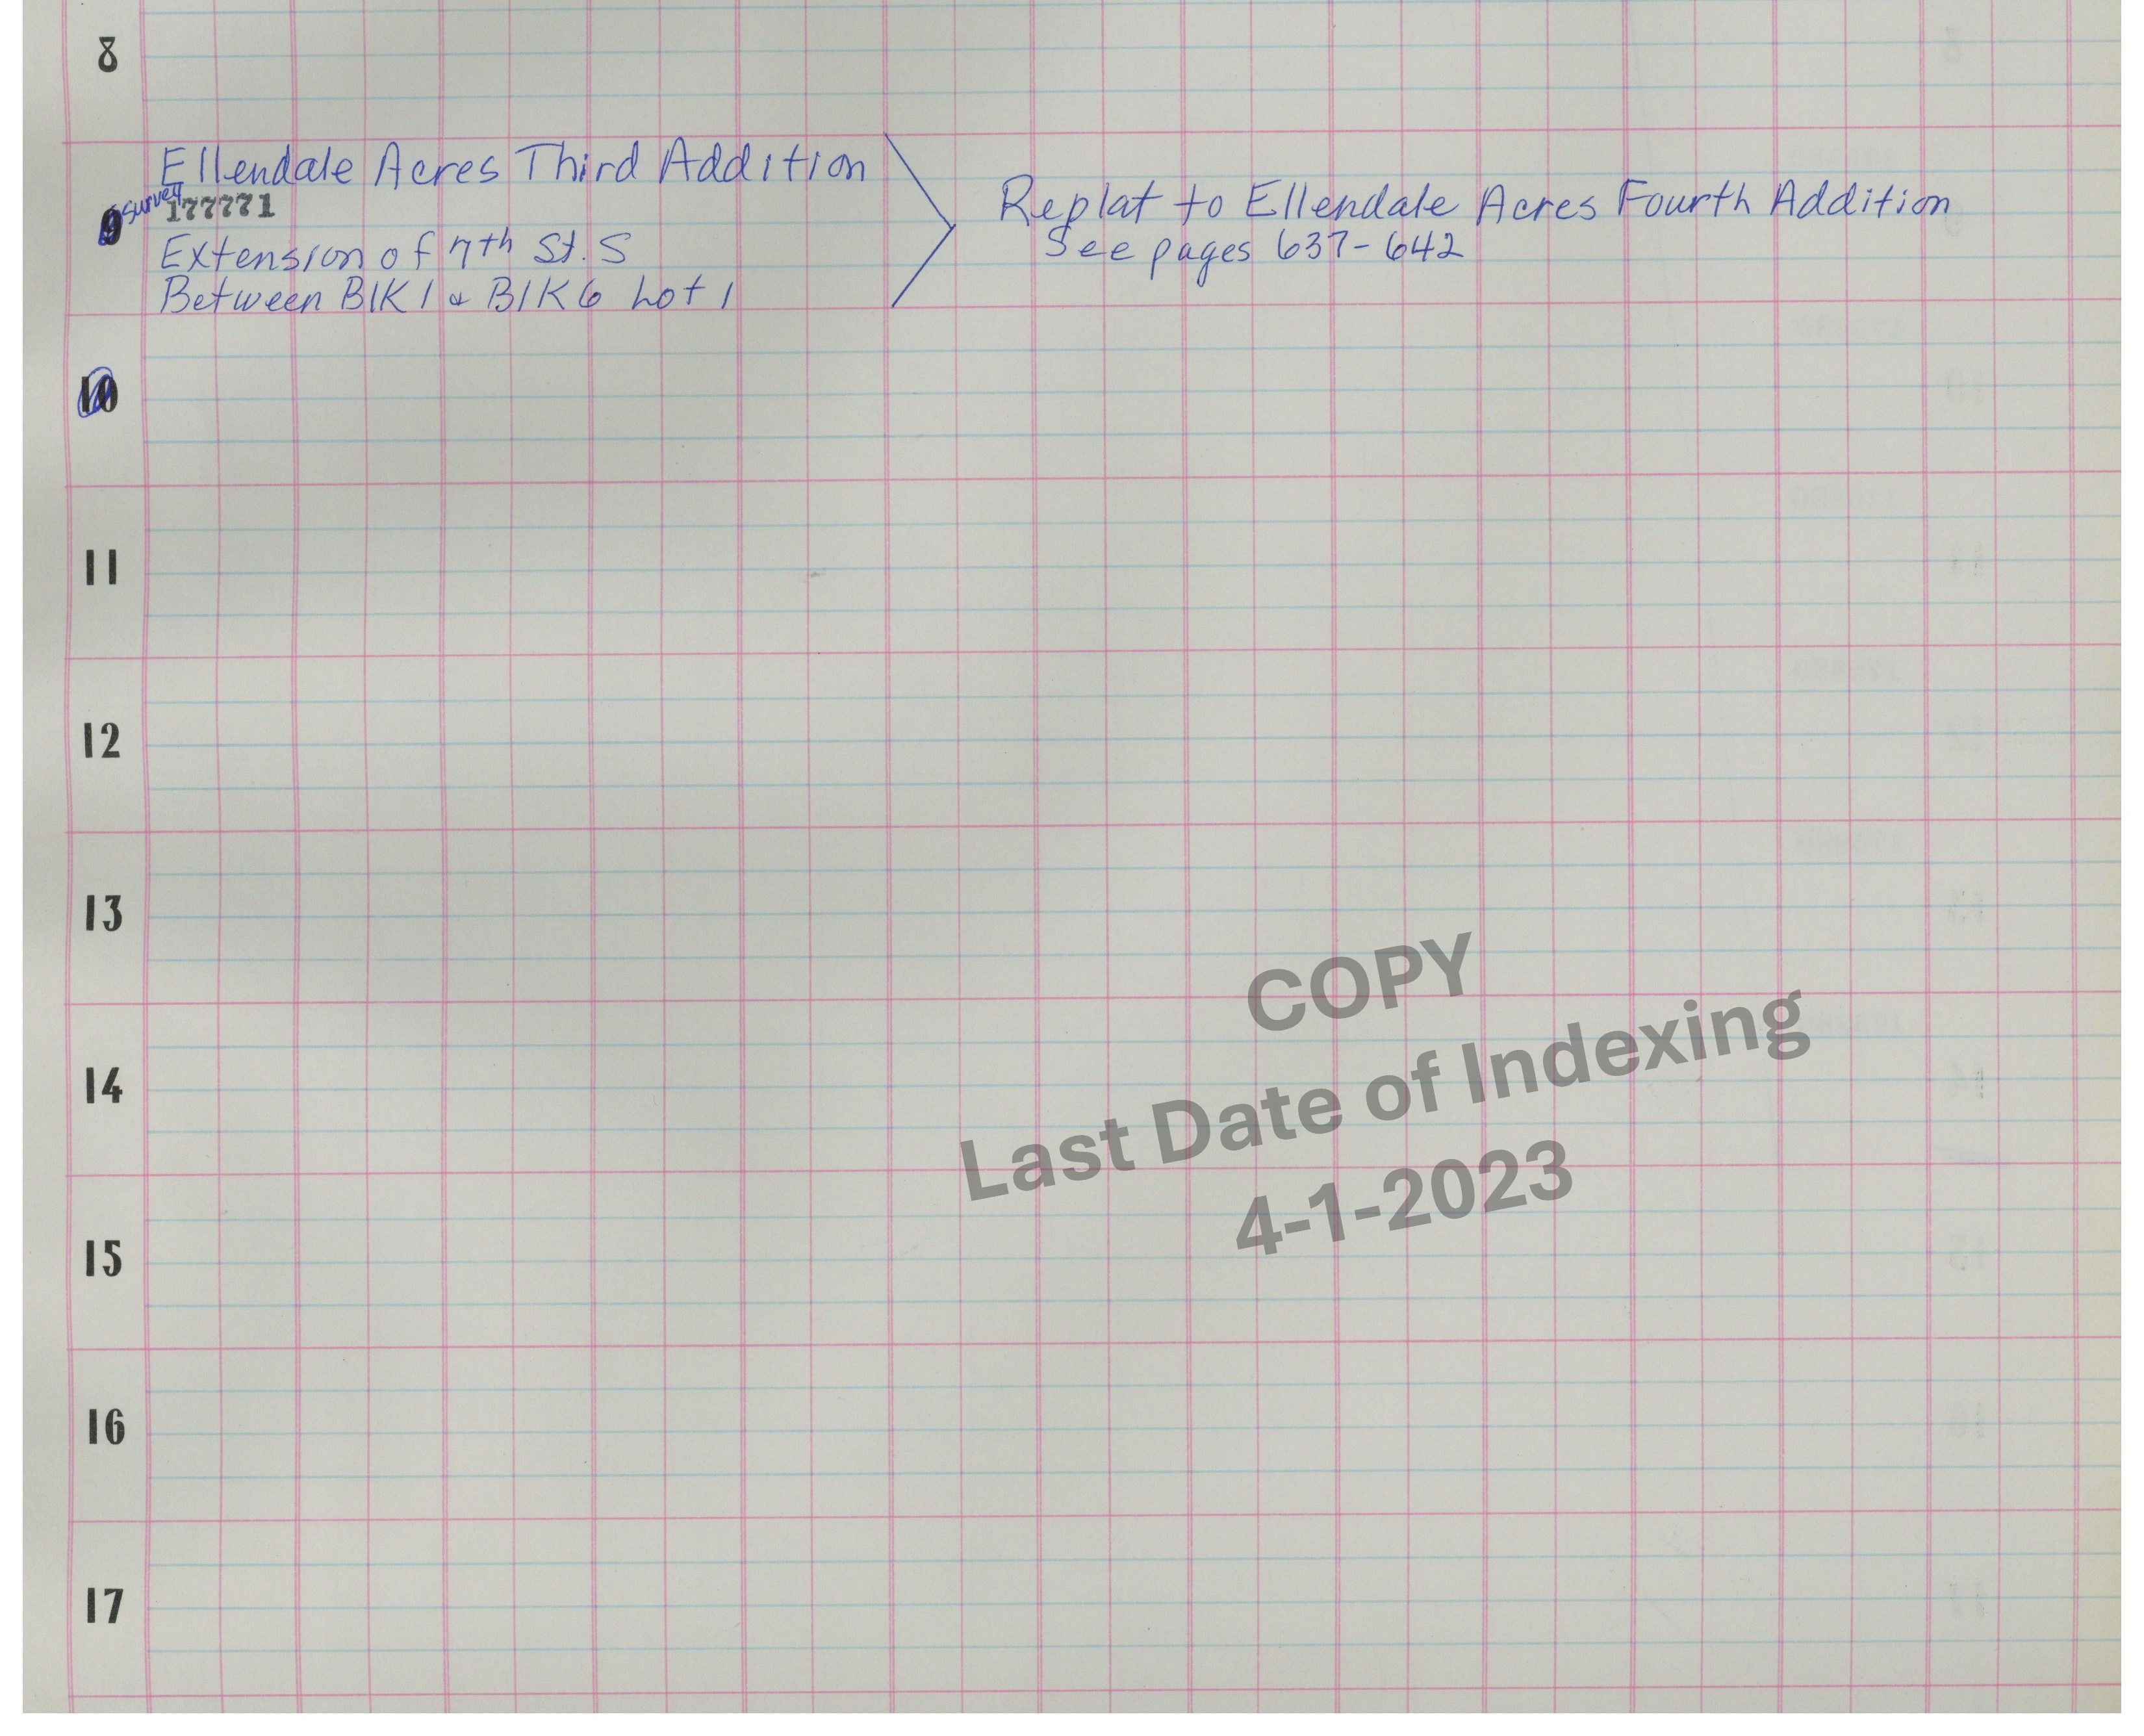 8
Ellendale Acres Third Addition
9 survey 177771
Extension of 7th St. S
Between Blk 1 & Blk 6 Lot 1
Replat to Ellendale Acres Fourth Addition
See pages 637-642
10
11
12
13
COPY
Last Date of Indexing
4-1-2023
14
15
16
17